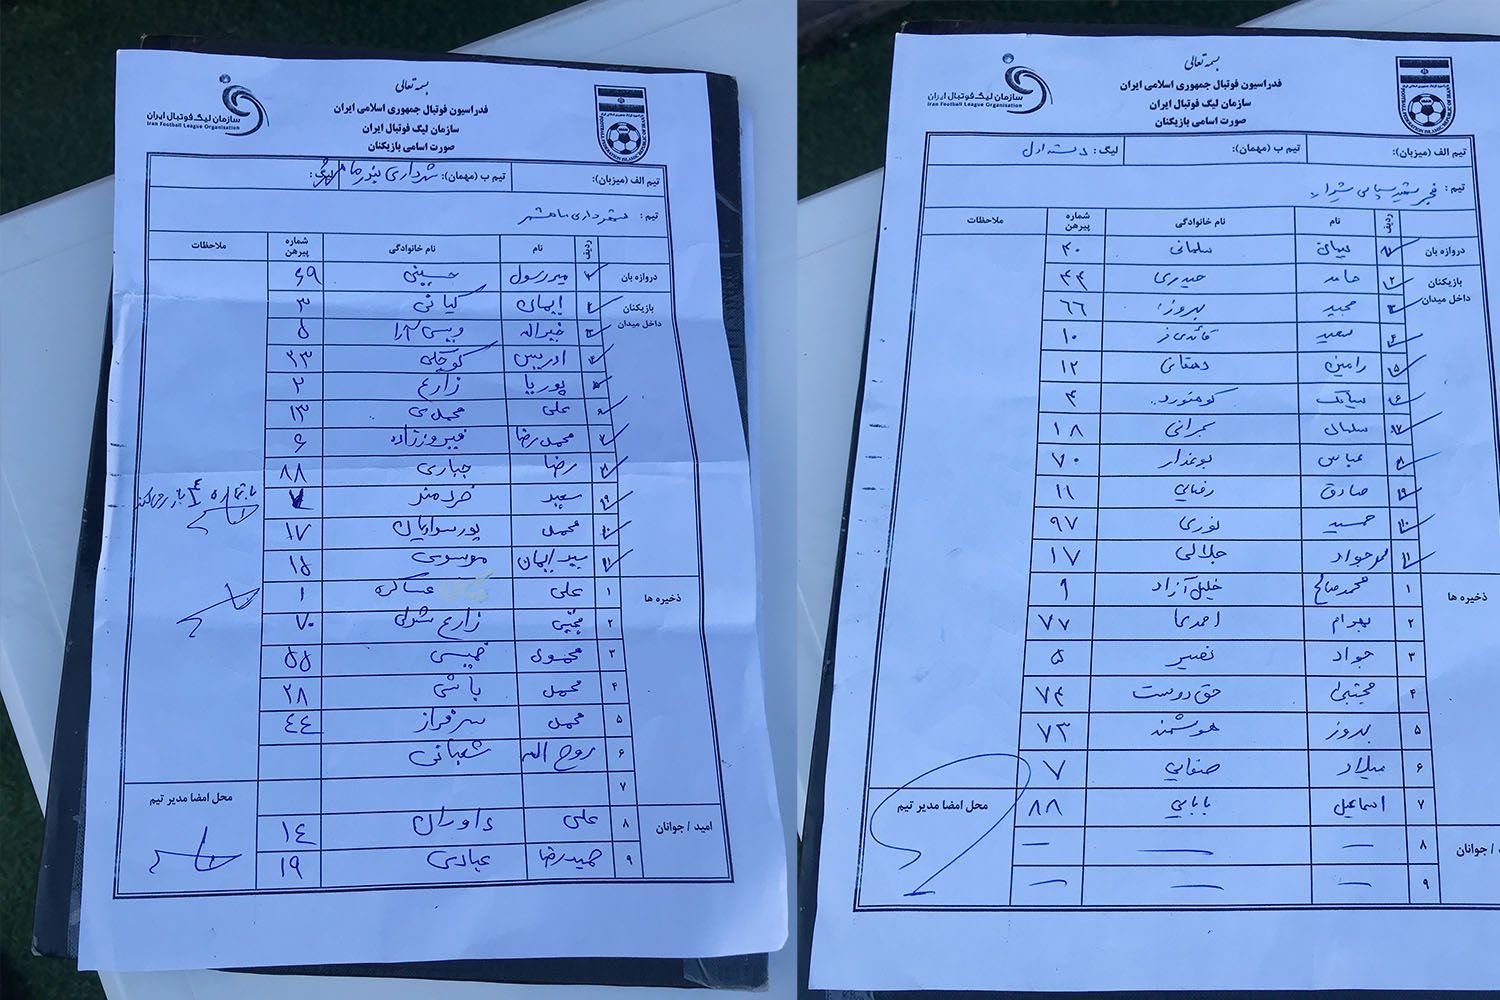 بسمه تعالی
فدراسیون فوتبال جمهوری اسلامی ایران
سازمان لیگ فوتبال ایران
صورت اسامی بازیکنان
سازمان لیگ فوتبال ایران
Iran Football League Organisation
تیم الف (میزبان): تیم ب (مهمان): شهرداری بندر ماهشهر لیگ:
تیم : شهرداری ماهشهر
ردیف نام نام خانوادگی شماره پیرهن ملاحظات
دروازه بان ۱ میررسول حسینی ۶۹
بازیکنان داخل میدان
۲ ایمان کیانی ۳
۳ خیراله ویسی آرا ۵
۴ ادریس کوچکی ۳۳
۵ پوریا زارع ۲
۶ علی محمدی ۱۳
۷ محمدرضا فیروززاده ۶
۸ رضا جباری ۸۸
۹ سعید خردمند
۱۰ محمد پورسواریان ۱۷
۱۱ سید ایمان موسوی ۱۵
ذخیره ها
۱ علی عساکره ۱
۲ مجتبی زارع شولی ۷۰
۳ محمود خمیسی ۵۵
۴ محمد باشی ۳۸
۵ محمد سرفراز ۴۴
۶ روح اله شعبانی
۷
امید / جوانان
۸ علی داوران ۱۴
۹ حمیدرضا عبادی ۱۹
محل امضا مدیر تیم
بسمه تعالی
فدراسیون فوتبال جمهوری اسلامی ایران
سازمان لیگ فوتبال ایران
صورت اسامی بازیکنان
سازمان لیگ فوتبال ایران
Iran Football League Organisation
تیم الف (میزبان): تیم ب (مهمان): لیگ : دسته اول
تیم : فجر شهید سپاسی شیراز
ردیف نام نام خانوادگی شماره پیرهن ملاحظات
دروازه بان ۱ سلمانی ۴۰
بازیکنان داخل میدان
۲ حامد حیدری ۴۴
۳ مجید ۶۶
۴ سعید قائدی فر ۱۰
۵ رامین دهقانی ۱۲
۶ سیامک کوهنورد ۴
۷ سلمان بحرانی ۱۸
۸ عباس بوعذار ۷۰
۹ صادق رضایی ۱۱
۱۰ حمید نوری ۹۷
۱۱ محمدجواد جلالی ۱۷
ذخیره ها
۱ محمدصالح خلیل آزاد ۹
۲ بهرام احمدی ۷۷
۳ جواد نصیر ۵
۴ مجتبی حق دوست ۷۴
۵ بهروز هوشمند ۷۳
۶ میلاد صنعایی ۷
۷ اسماعیل بابایی ۸۸
/ جوانان
۸ — — —
۹ — — —
محل امضا مدیر تیم